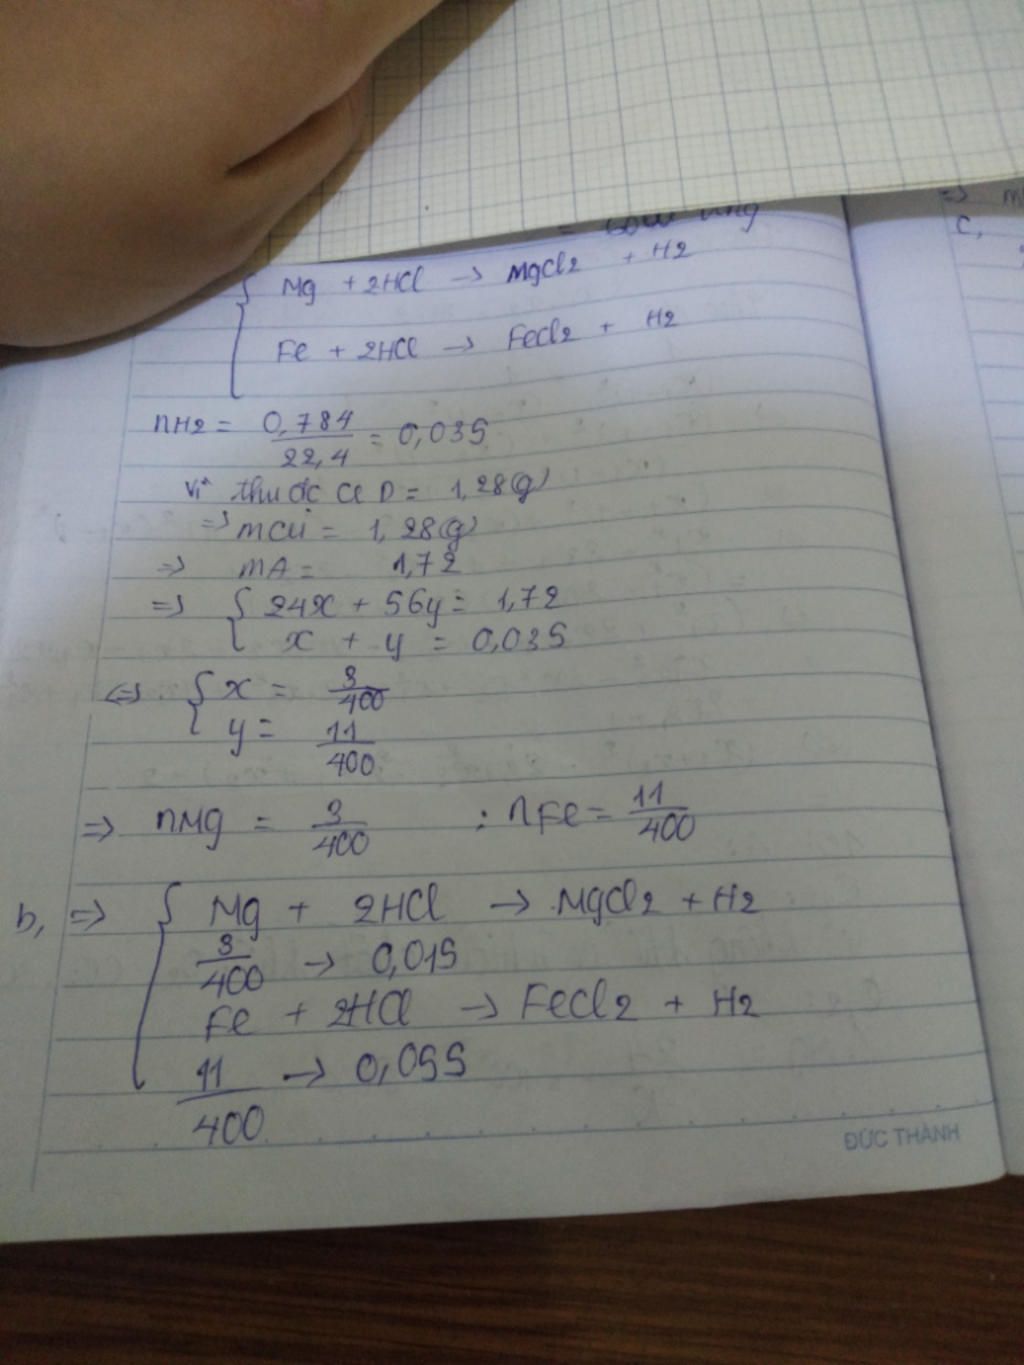 Mg + 2HCl → MgCl2 + H2
Fe + 2HCl → FeCl2 + H2
nH2 = 0,784/22,4 = 0,035
Vì thu đc D = 1,28(g)
=> mCu = 1,28(g)
=> mA = 1,72
=> { 24x + 56y = 1,72
x + y = 0,035
<=> { x = 3/400
y = 11/400
=> nMg = 3/400 ; nFe = 11/400
b, => { Mg + 2HCl → MgCl2 + H2
3/400 → 0,015
Fe + 2HCl → FeCl2 + H2
11/400 → 0,055
ĐỨC THÀNH
=> m
C,